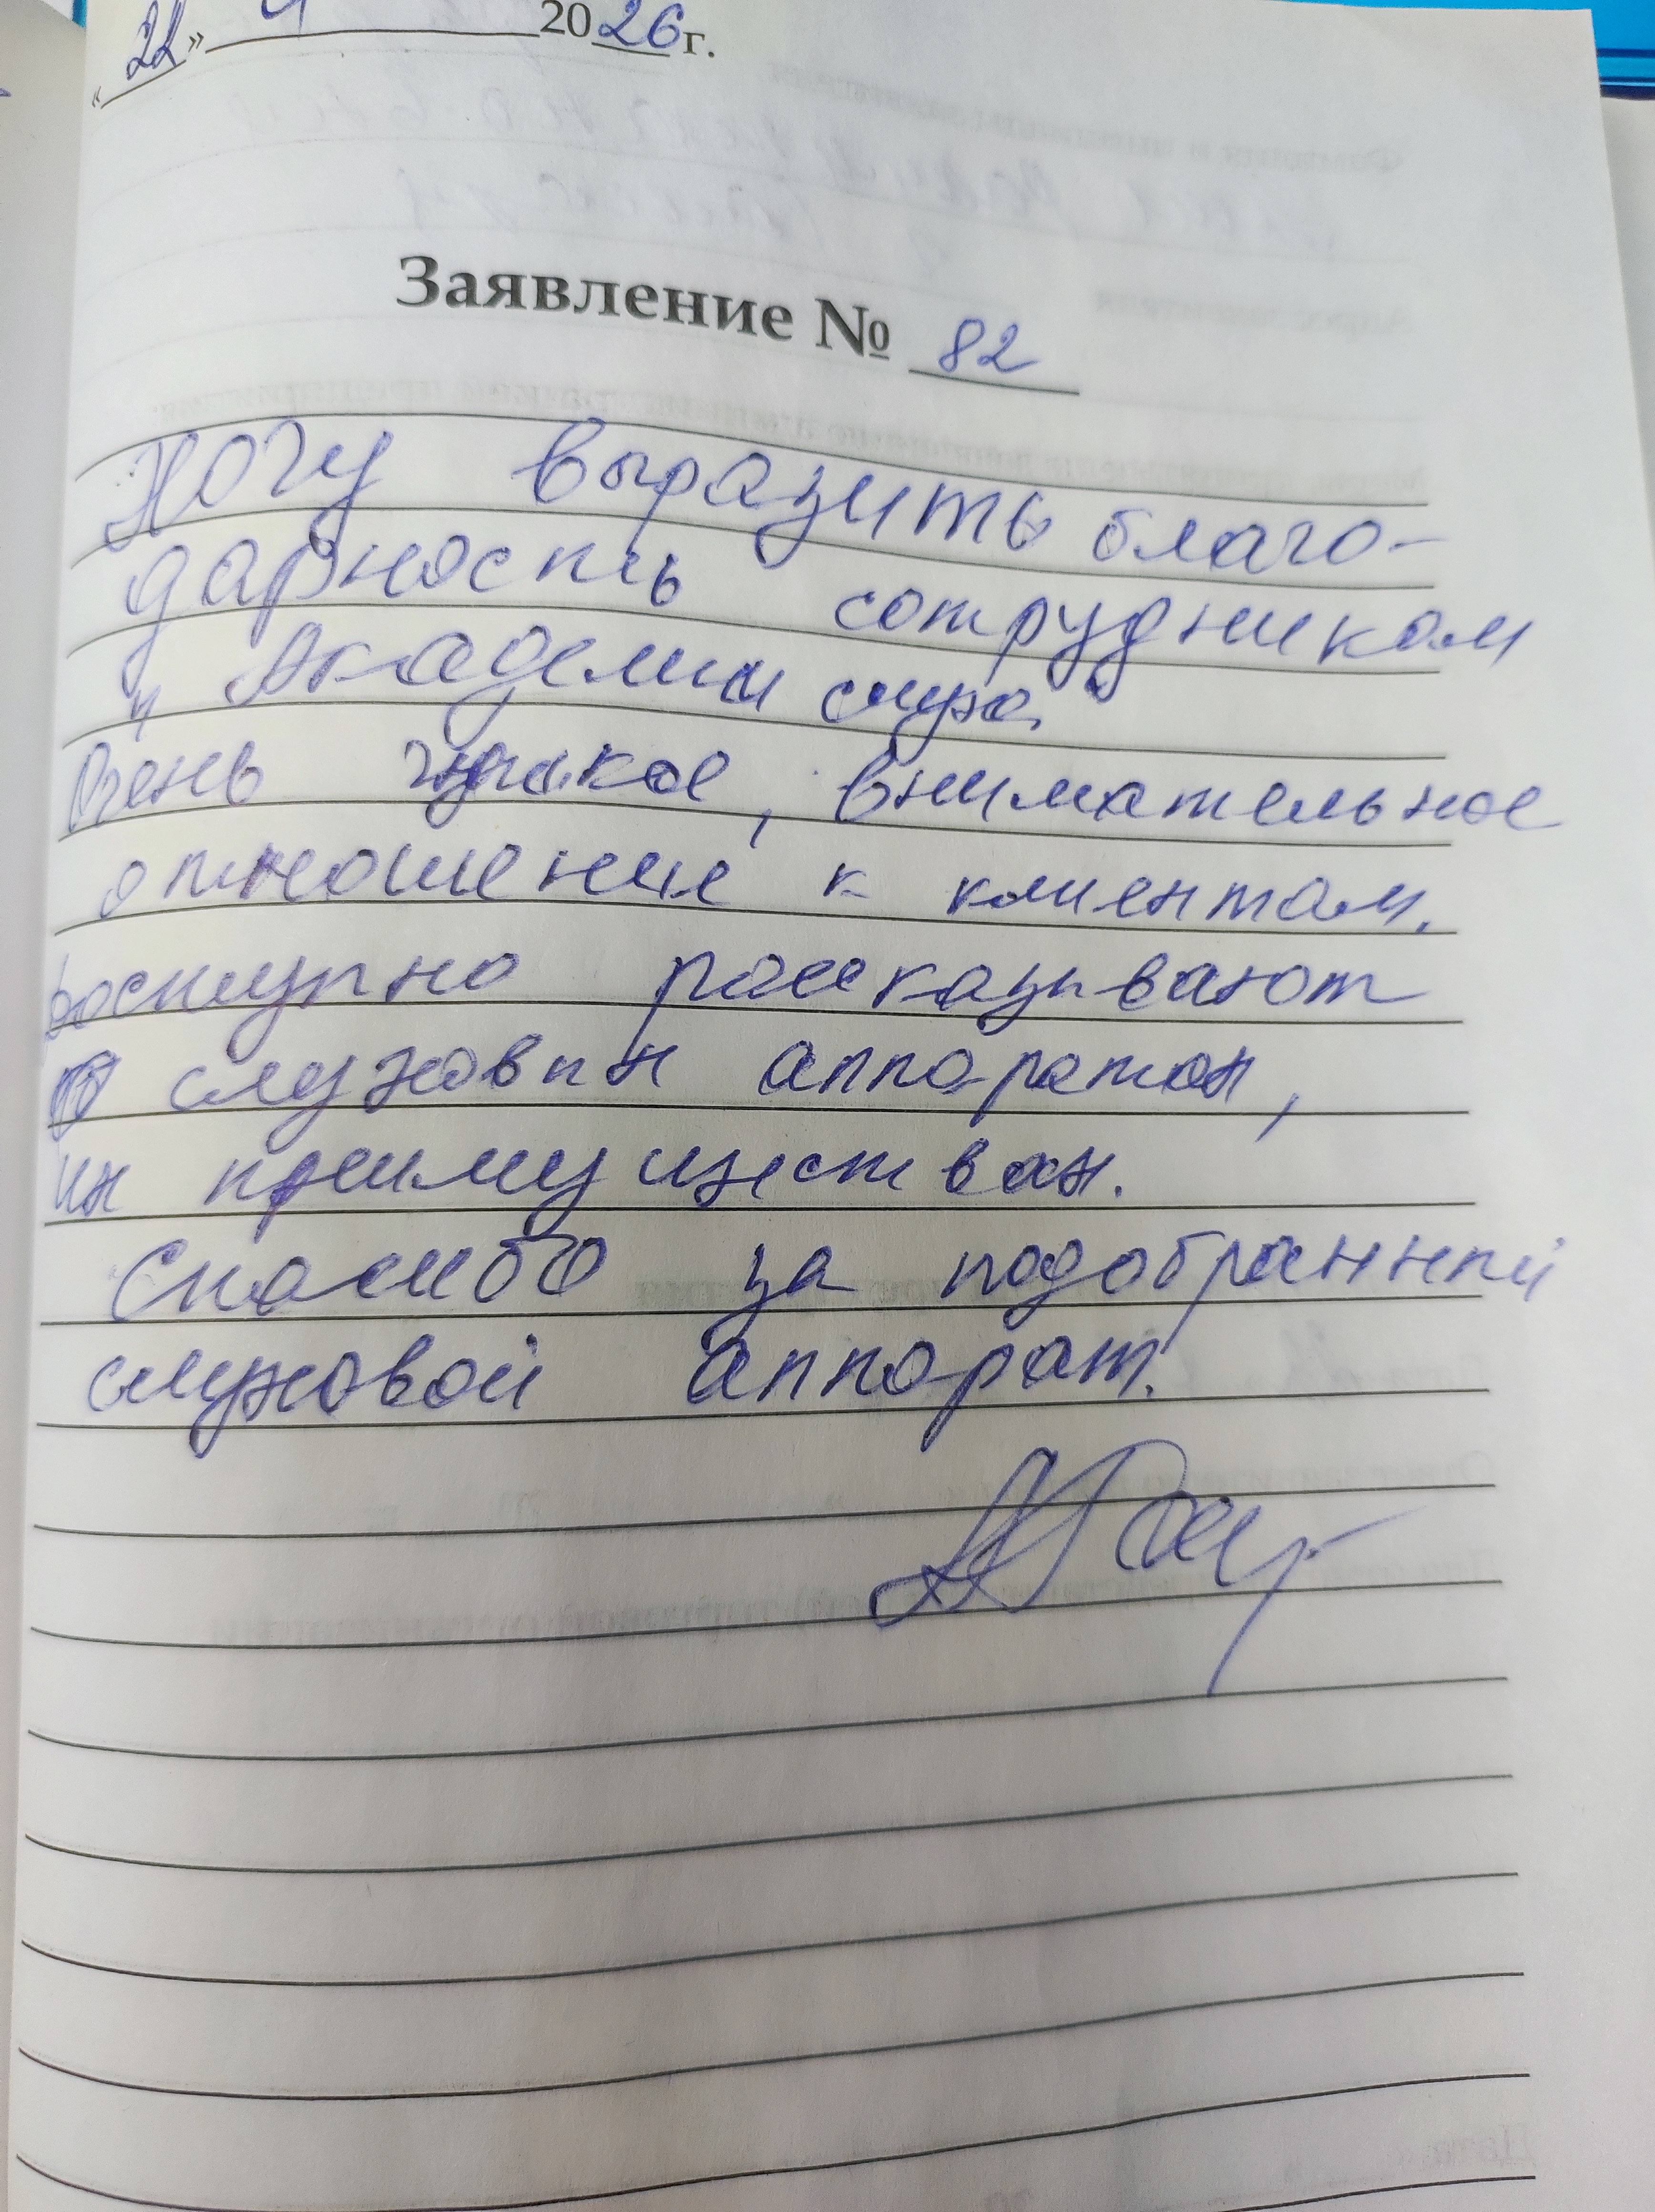 «22» 4 2026 г.
Заявление № 82
Хочу выразить благо-
дарность сотрудникам
"Академии слуха"
Очень чуткое, внимательное
отношение к клиентам.
Доступно рассказывают
о слуховых аппаратах,
их преимуществах.
Спасибо за подобранный
слуховой аппарат.